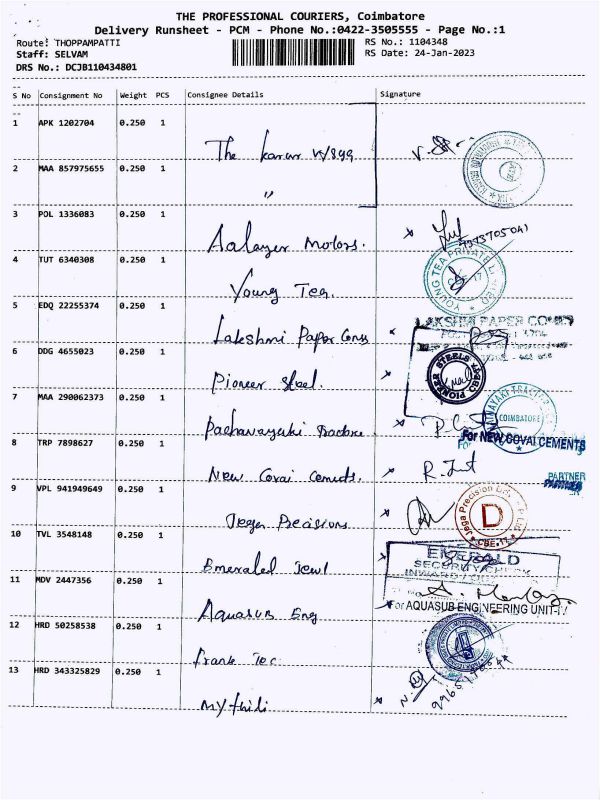 THE PROFESSIONAL COURIERS, Coimbatore
Delivery Runsheet - PCM - Phone No.:0422-3505555 - Page No.:1
Route: THOPPAMPATTI RS No.: 1104348
Staff: SELVAM RS Date: 24-Jan-2023
DRS No.: DCJB110434801
S No Consignment No Weight PCS Consignee Details Signature
1 APK 1202704 0.250 1
The karur
2 MAA 857975655 0.250 1
"
3 POL 1336083 0.250 1
Aalayer Motors.
4 TUT 6340308 0.250 1
Young Tea.
YOUNG TEA PRIVATE LIMITED
CBE-17
5 EDQ 22255374 0.250 1
Lakshmi Paper Cones
LAKSHMI PAPER CONES
6 DDG 4655023 0.250 1
Pioneer Steel.
PIONEER STEELS
7 MAA 290062373 0.250 1
COIMBATORE
For NEW COVAI CEMENTS
8 TRP 7898627 0.250 1
New Covai Cements.
PARTNER
9 VPL 941949649 0.250 1
Jega Precisions
Jega Precision
D
CBE-17
10 TVL 3548148 0.250 1
Emerald Jewl
EMERALD
SECURITY
INWARD
11 MDV 2447356 0.250 1
Aquasub Eng
For AQUASUB ENGINEERING UNIT-
12 HRD 50258538 0.250 1
Frank Tec
13 HRD 343325829 0.250 1
Mythili